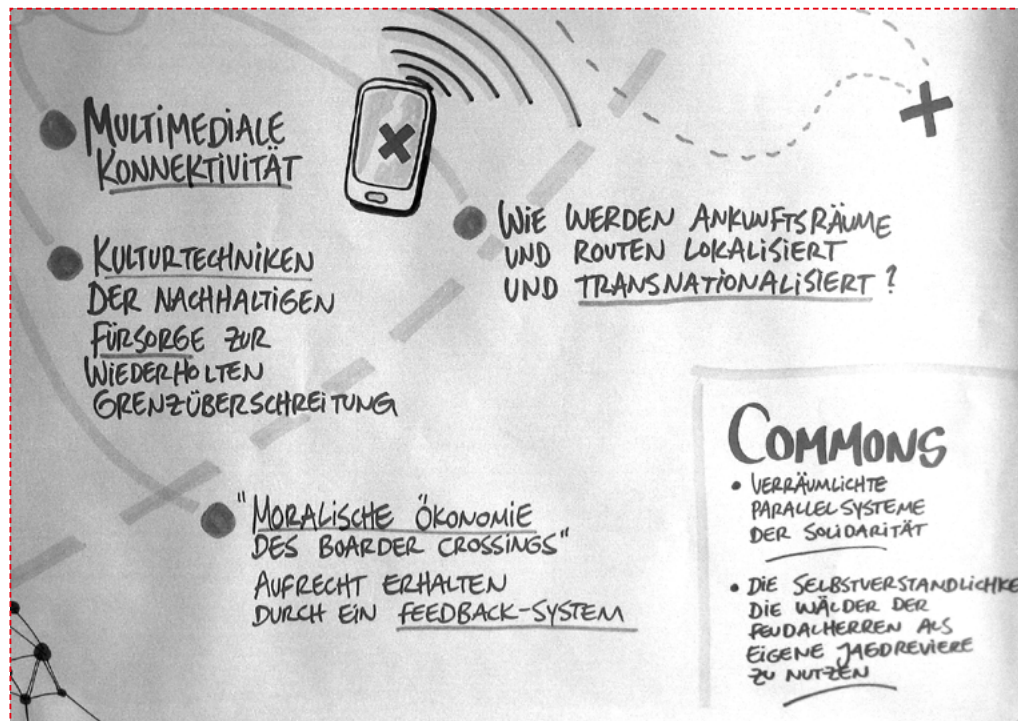 MULTIMEDIALE
KONNEKTIVITÄT
KULTURTECHNIKEN
DER NACHHALTIGEN
FÜRSORGE ZUR
WIEDERHOLTEN
GRENZÜBERSCHREITUNG
WIE WERDEN ANKUNFTSRÄUME
UND ROUTEN LOKALISIERT
UND TRANSNATIONALISIERT?
"MORALISCHE ÖKONOMIE
DES BOARDER CROSSINGS"
AUFRECHT ERHALTEN
DURCH EIN FEEDBACK-SYSTEM
COMMONS
• VERRÄUMLICHTE
PARALLELSYSTEME
DER SOLIDARITÄT
• DIE SELBSTVERSTANDLICHKE
DIE WÄLDER DER
FEUDALHERREN ALS
EIGENE JAGDREVIERE
ZU NUTZEN